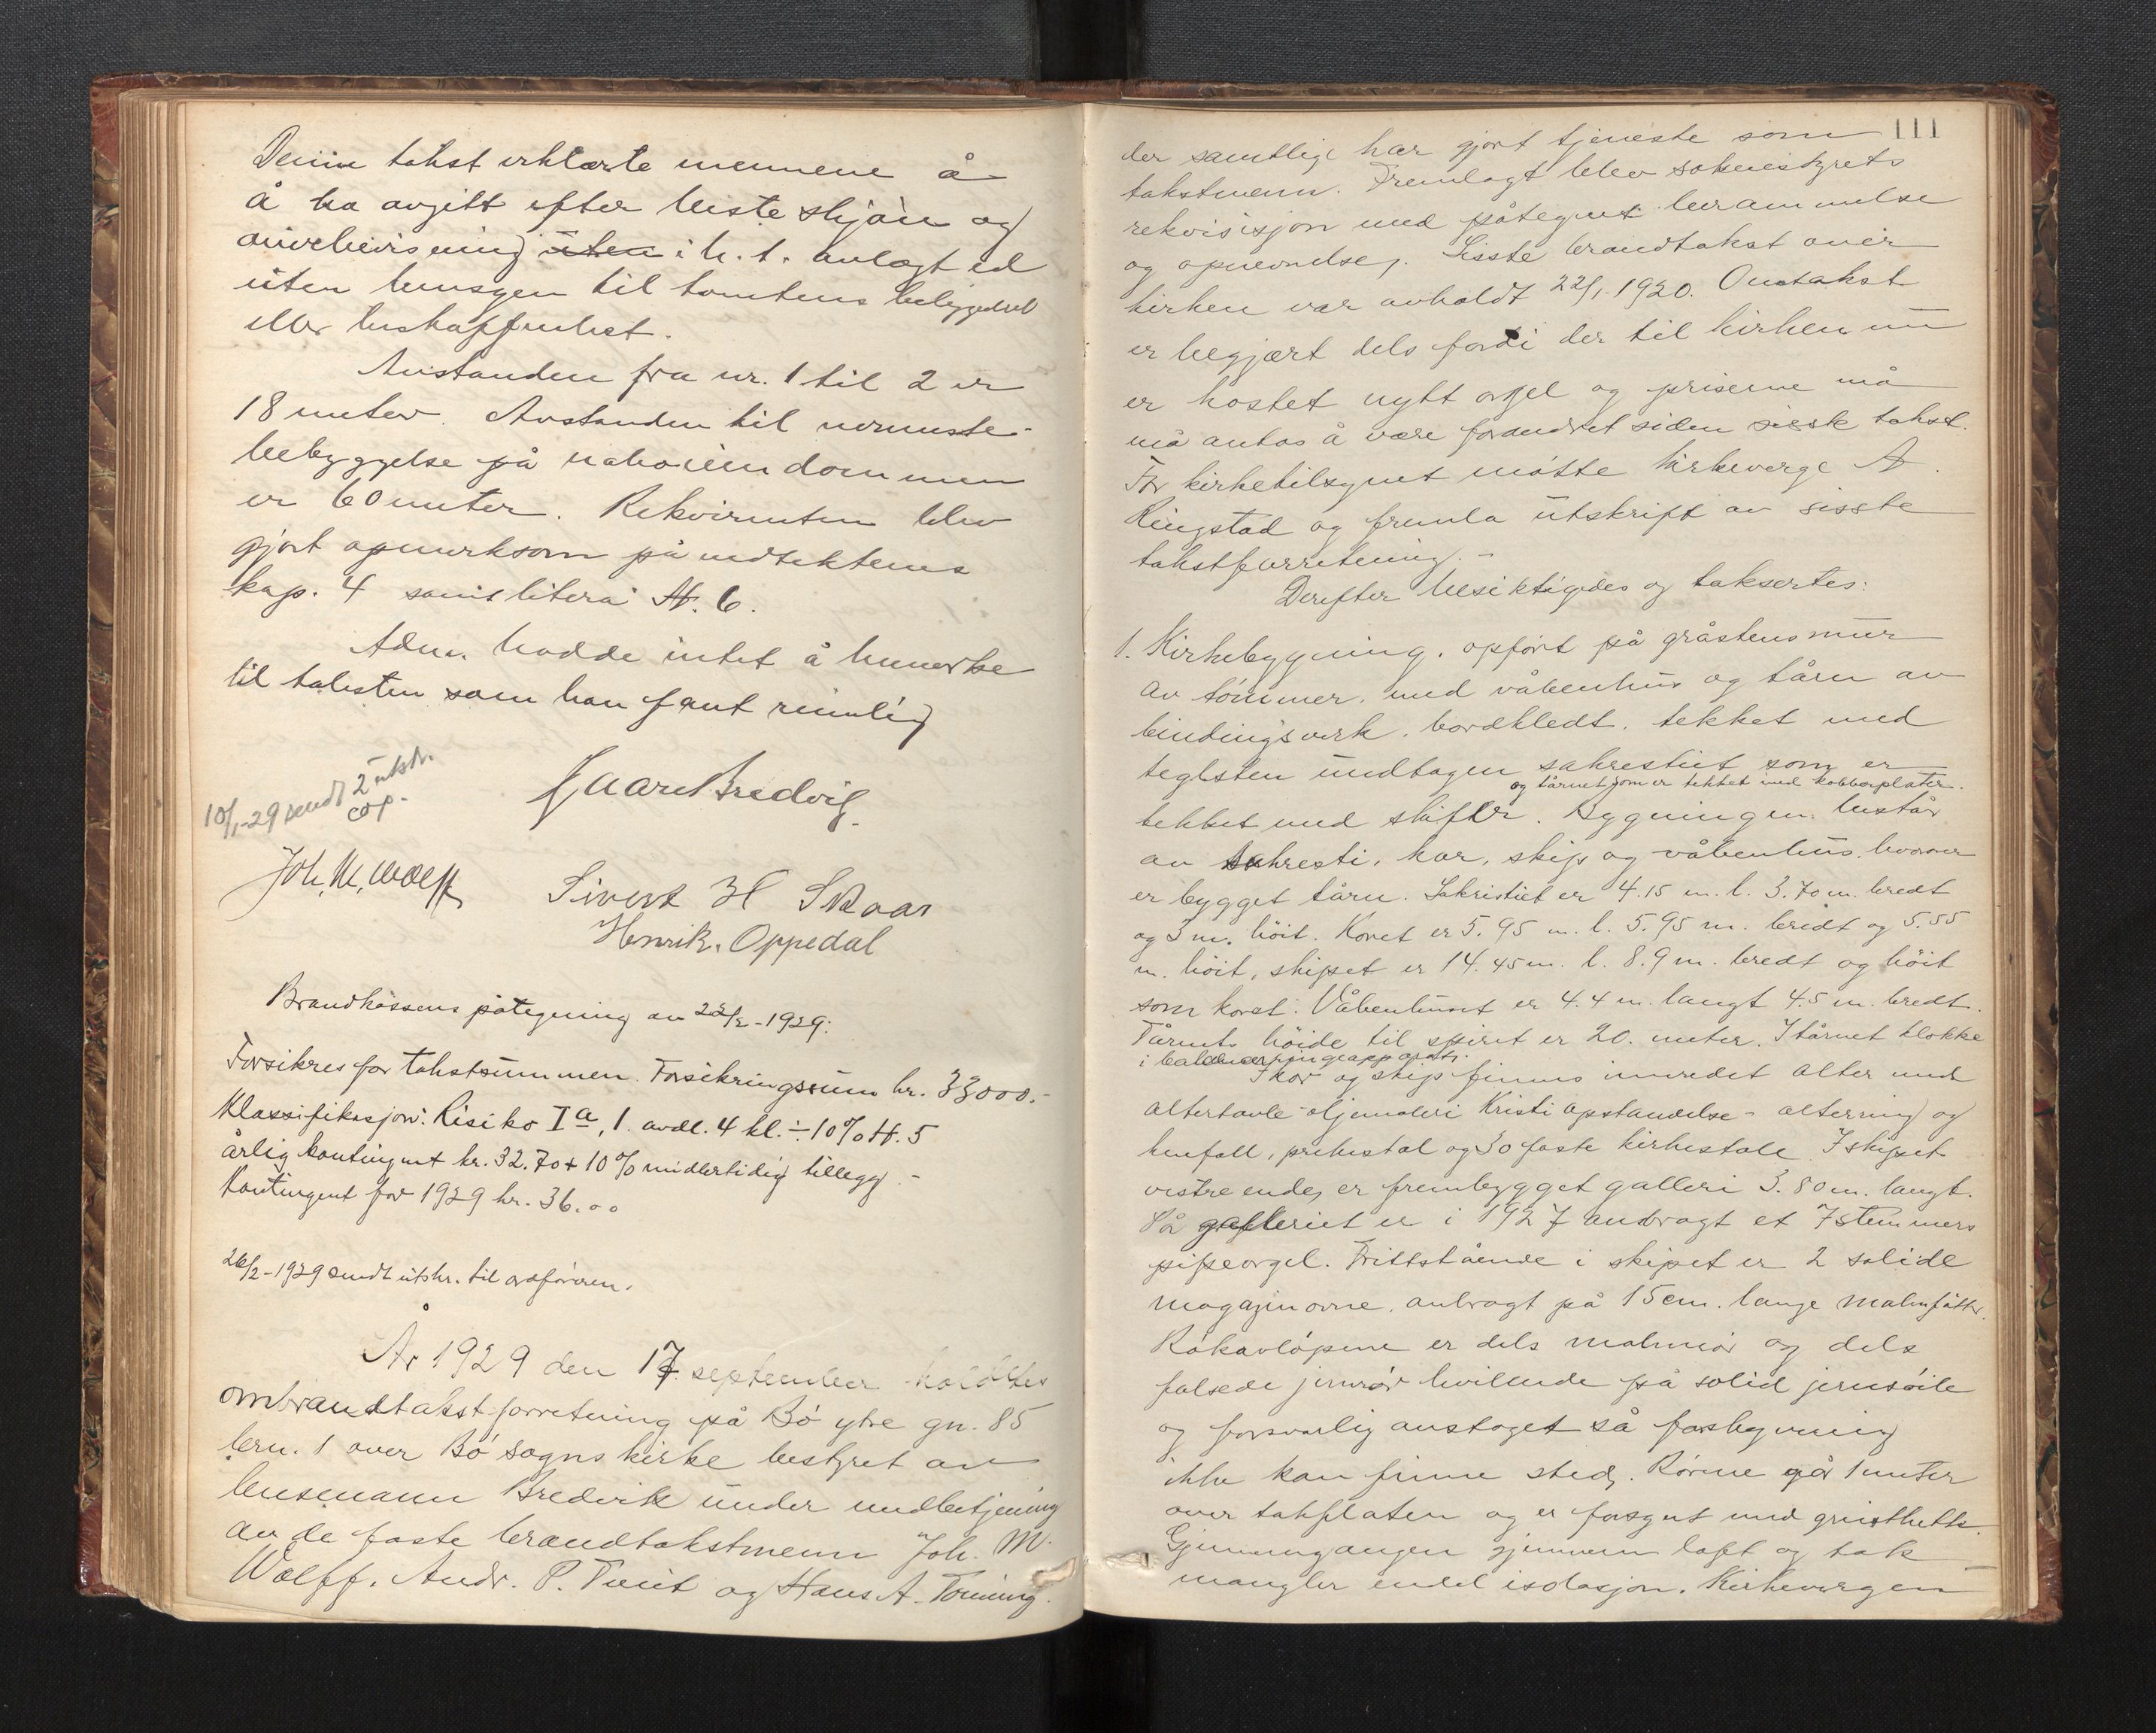 Denne takst erklærte mennene å
å ha avgitt efter beste skjøn og
overbevisning uten i h. t. avlagt ed
uten hensyn til tomtens beliggenhet
eller beskaffenhet.
Avstanden fra nr. 1 til 2 er
18 meter. Avstanden til nermeste
bebyggelse på naboeiendommen
er 60 meter. Rekvirenten blev
gjort opmerksom på vedtektenes
kap. 4 samt litera H. 6.
Adm. hadde intet å bemerke
til taksten som han fant rimelig
10/1-29 sendt 2 utskr.
cop.
Joh. M. Wolff
Sivert H Skaar
Henrik. Oppedal
Brandkassens påtegning av 22/2-1929:
Forsikres for takstsummen. Forsikringssum kr. 33000.-
Klassifikasjon: Risiko I a, 1. avdl. 4 kl. ÷ 10% H. 5
årlig kontingent kr. 32.70 + 10% midlertidig tillegg.-
Kontingent for 1929 kr. 36.00
26/2-1929 sendt utskr. til ordføreren.
År 1929 den 17 september holdtes
ombrandtakstforretning på Bø ytre gn. 85
brn. 1 over Bø sogns kirke bestyret av
lensmann Bredvik under medbetjening
av de faste brandtakstmenn Joh. M.
Wolff. Andr. P. Tveit og Hans A.
111
der samtlige har gjort tjeneste som
takstmenn. Fremlagt blev soknestyrets
rekvisisjon med påtegnet berammelse
og opnevnelse. Sisste brandtakst over
kirken var avholdt 22/1. 1920. Omtakst
er begjært dels fordi der til kirken nu
er kostet nytt orgel og priserne må
må antas å være forandret siden sisste takst.
For kirketilsynet møtte kirkeverge A.
Ringstad og fremla utskrift av sisste
takstforretning.-
Derefter besiktigedes og taksertes:
1. Kirkebygning. opført på gråstensmur
av tømmer, med våbenhus og tårn av
bindingsverk. bordkledt. tekket med
teglsten undtagen sakrestiet som er
og tårnet som er tekket med kobberplater.
tekket med skifer. Bygningen består
av sakresti, kor, skip og våbenhus hvorover
er bygget tårn. Sakristiet er 4.15 m. l. 3.70 m. bredt
og 3 m. höit. Koret er 5.95 m. l. 5.95 m. bredt og 5.55
m. höit, skipet er 14.45 m. l. 8.9 m. bredt og höit
som koret. Våbenhuset er 4.4 m. langt 4.5 m. bredt.
Tårnets höide til spiret er 20. meter. I tårnet klokke
i ringeapparat.
I kor og skip finnes innredet alter med
altertavle - oljemaleri Kristi opstandelse - altering og
knefall, prekestol og 30 faste kirkestole I skipet
vestre ende, er frembygget galleri 3.80 m. langt.
På galleriet er i 1927 anbragt et 7 stemmers
pipeorgel. Frittstående i skipet er 2 solide
magazinovne. anbragt på 15 cm. lange malmføtter.
Røkavløpene er dels malmrør og dels
falsede jernrør hvilende på solid jernsøile
og forsvarlig avstaget så forskyvning
ikke kan finne sted. Rørene går 1 meter
over takflaten og er forsynt med gnisthette.
Gjennemgangen gjennem loft og tak
mangler endel isolasjon. Kirkevergen